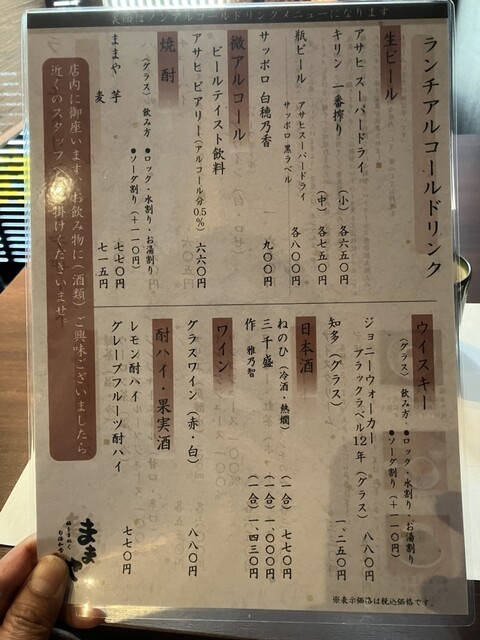 裏面はノンアルコールドリンクメニューになります
ランチアルコールドリンク
生ビール
アサヒ スーパードライ
(小) 各六五〇円
キリン 一番搾り
(中) 各七五〇円
瓶ビール
アサヒスーパードライ
サッポロ 黒ラベル
各八〇〇円
サッポロ 白穂乃香
九〇〇円
微アルコール
ビールテイスト飲料
アサヒ ビアリー(アルコール分0.5%)
六六〇円
焼酎
(グラス) 飲み方
●ロック・水割り・お湯割り
●ソーダ割り(+一一〇円)
ままや 芋
七七〇円
麦
七一五円
ウイスキー
(グラス) 飲み方
●ロック・水割り・お湯割り
●ソーダ割り(+一一〇円)
ジョニーウォーカー
ブラックラベル12年(グラス)
八八〇円
知多(グラス)
一、二五〇円
日本酒
ねのひ(冷酒・熱燗)
(一合) 七七〇円
三千盛
(一合) 一、〇〇〇円
作 雅乃智
(一合) 一、四三〇円
ワイン
グラスワイン(赤・白)
八八〇円
酎ハイ・果実酒
レモン酎ハイ
グレープフルーツ酎ハイ
七七〇円
店内に御座います、お飲み物に(酒類)ご興味ございましたら
近くのスタッフ
掛けくださいませ。
ままや
※表示価格は税込価格です。